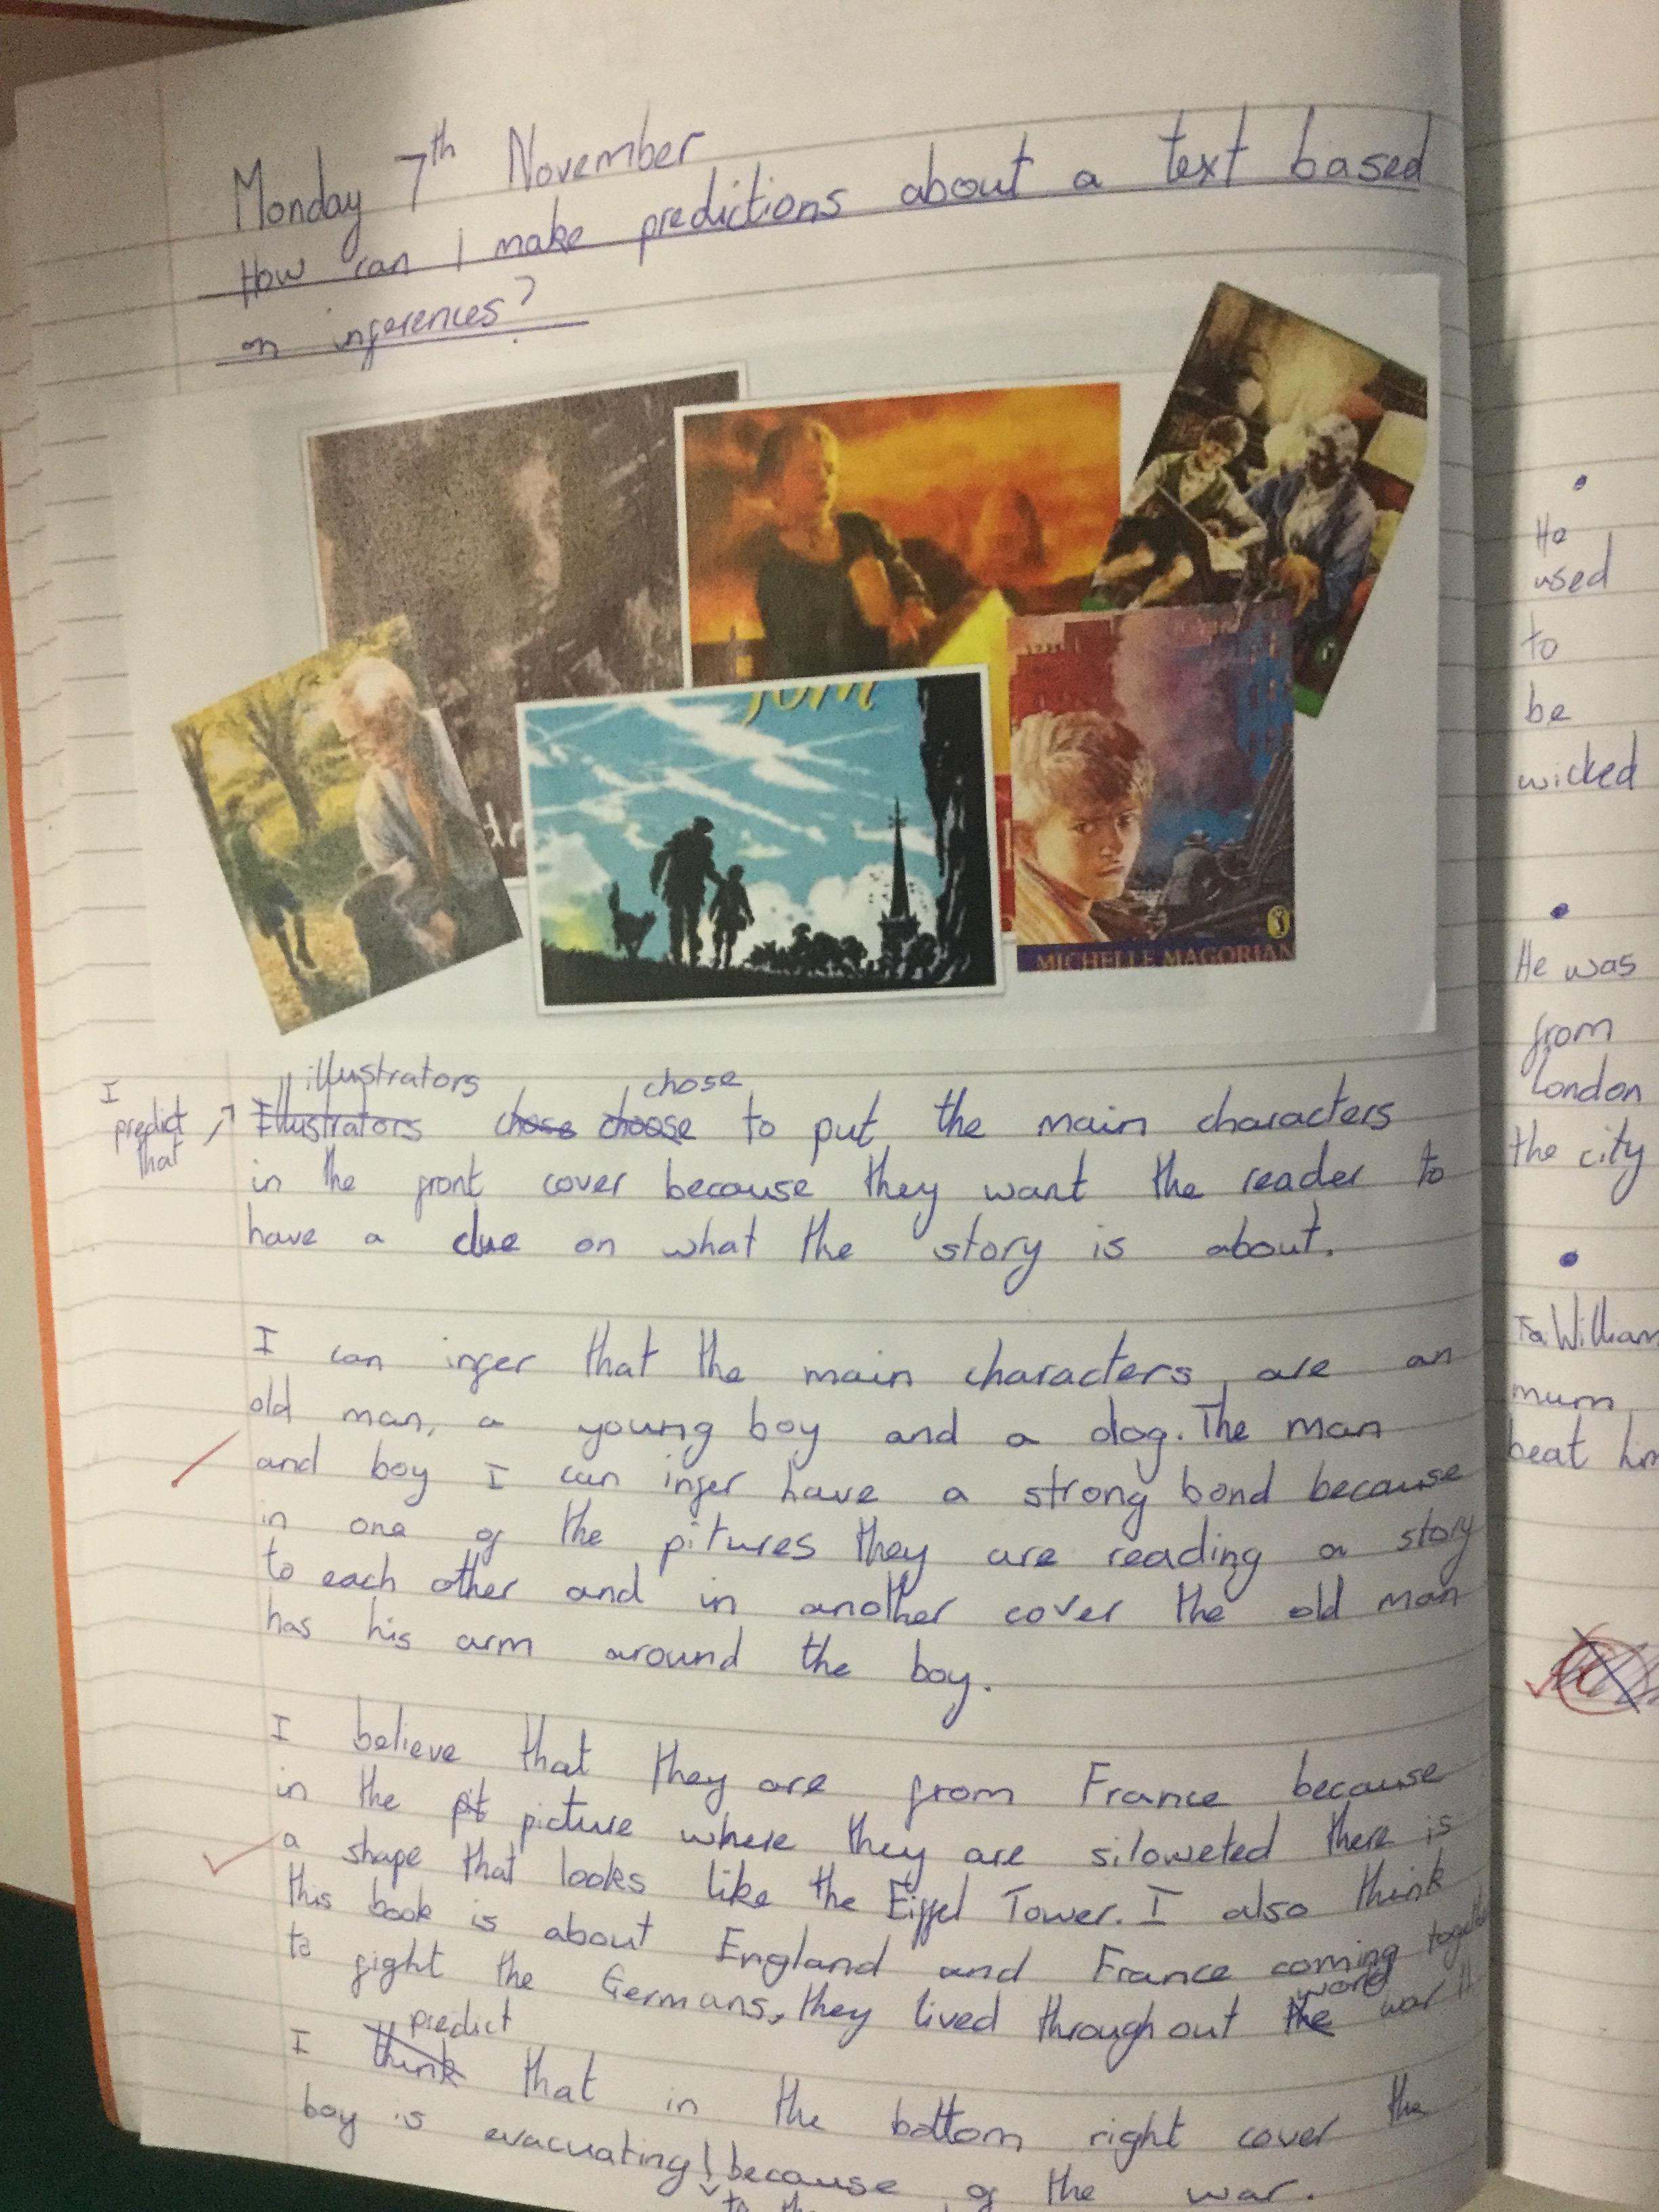 Monday 7th November
How can I make predictions about a text based
on inferences?
Tom
MICHELLE MAGORIAN
I predict that
illustrators chose
Illustrators chose choose to put the main characters
in the front cover because they want the reader to
have a clue on what the story is about.
I can infer that the main characters are an
old man, a young boy and a dog. The man
and boy I can infer have a strong bond because
in one of the pitures they are reading a story
to each other and in another cover the old man
has his arm around the boy.
I believe that they are from France because
in the pit picture where they are siloweted there is
a shape that looks like the Eiffel Tower. I also think
this book is about England and France coming together
to fight the Germans, they lived throughout the world war II
predict
I think that in the bottom right cover the
boy is evacuating because of the war.
to the
He
used
to
be
wicked
He was
from
London
the city
William
mum
beat him